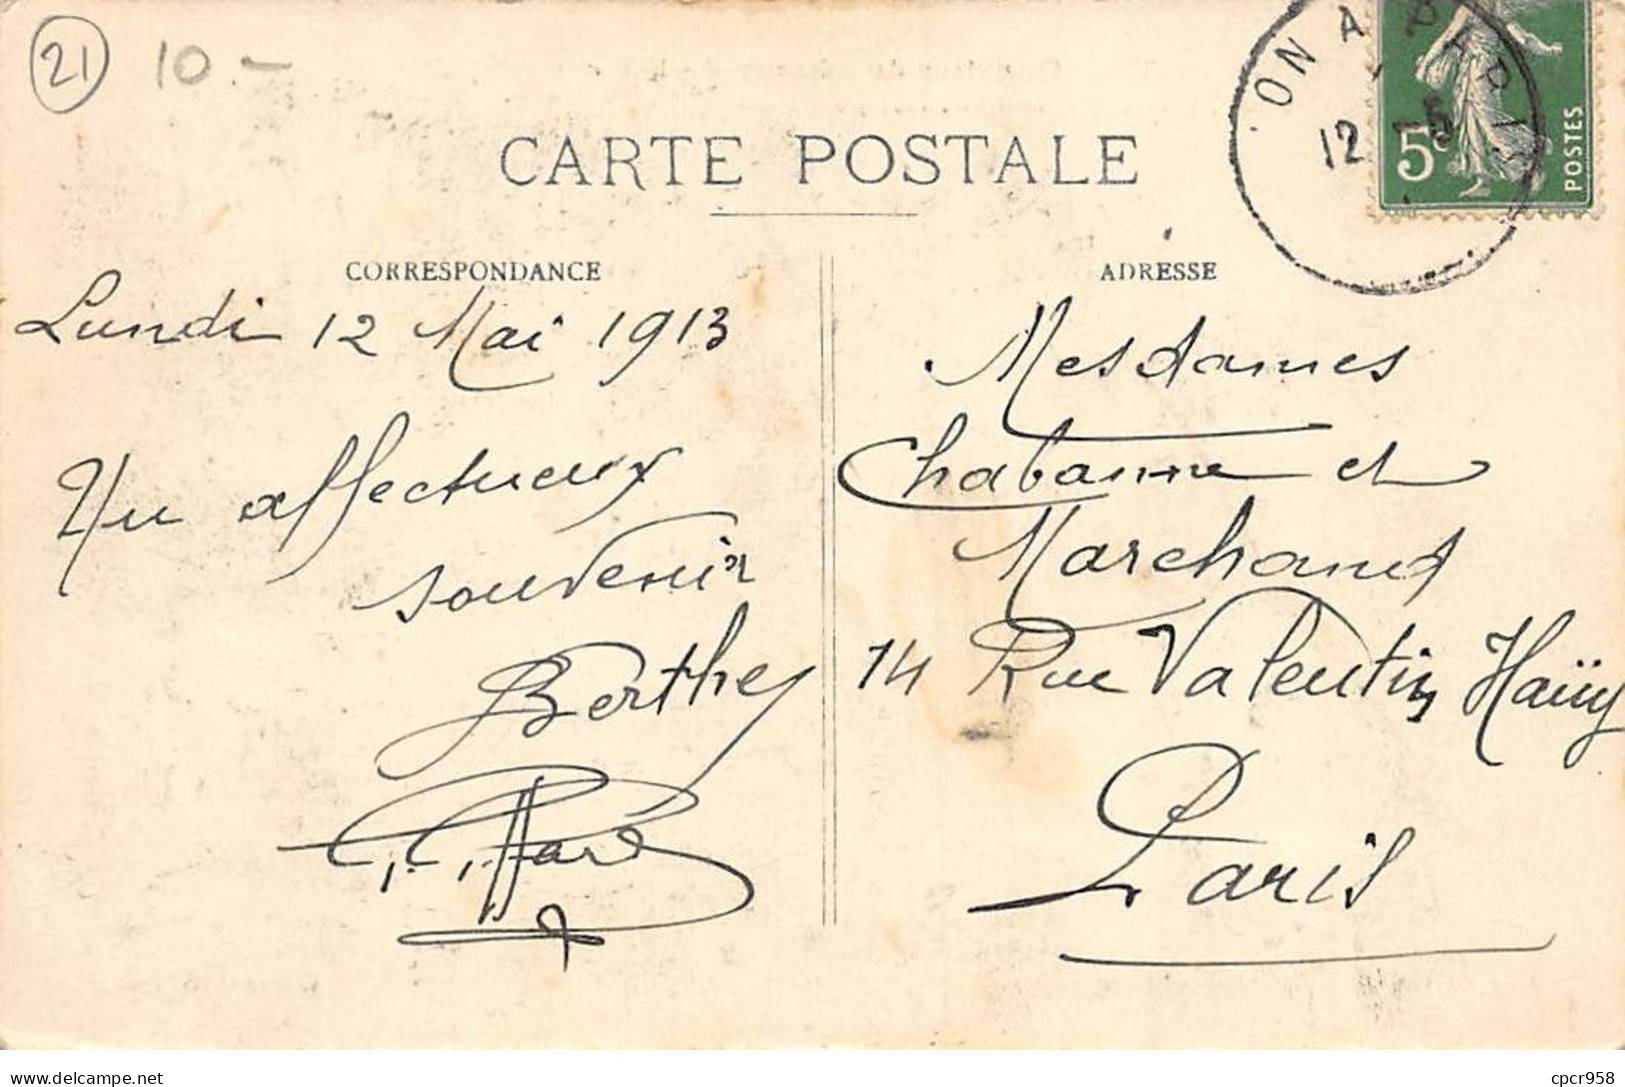 21 10 -
CARTE POSTALE
5c
POSTES
12 -5
CORRESPONDANCE
ADRESSE
Lundi 12 Mai 1913
Un affectueux
souvenir
Berthe
Mesdames
Chabanne et
Marchand
14 Rue Valentin Haüy
Paris
delcampe.net
cpcr958